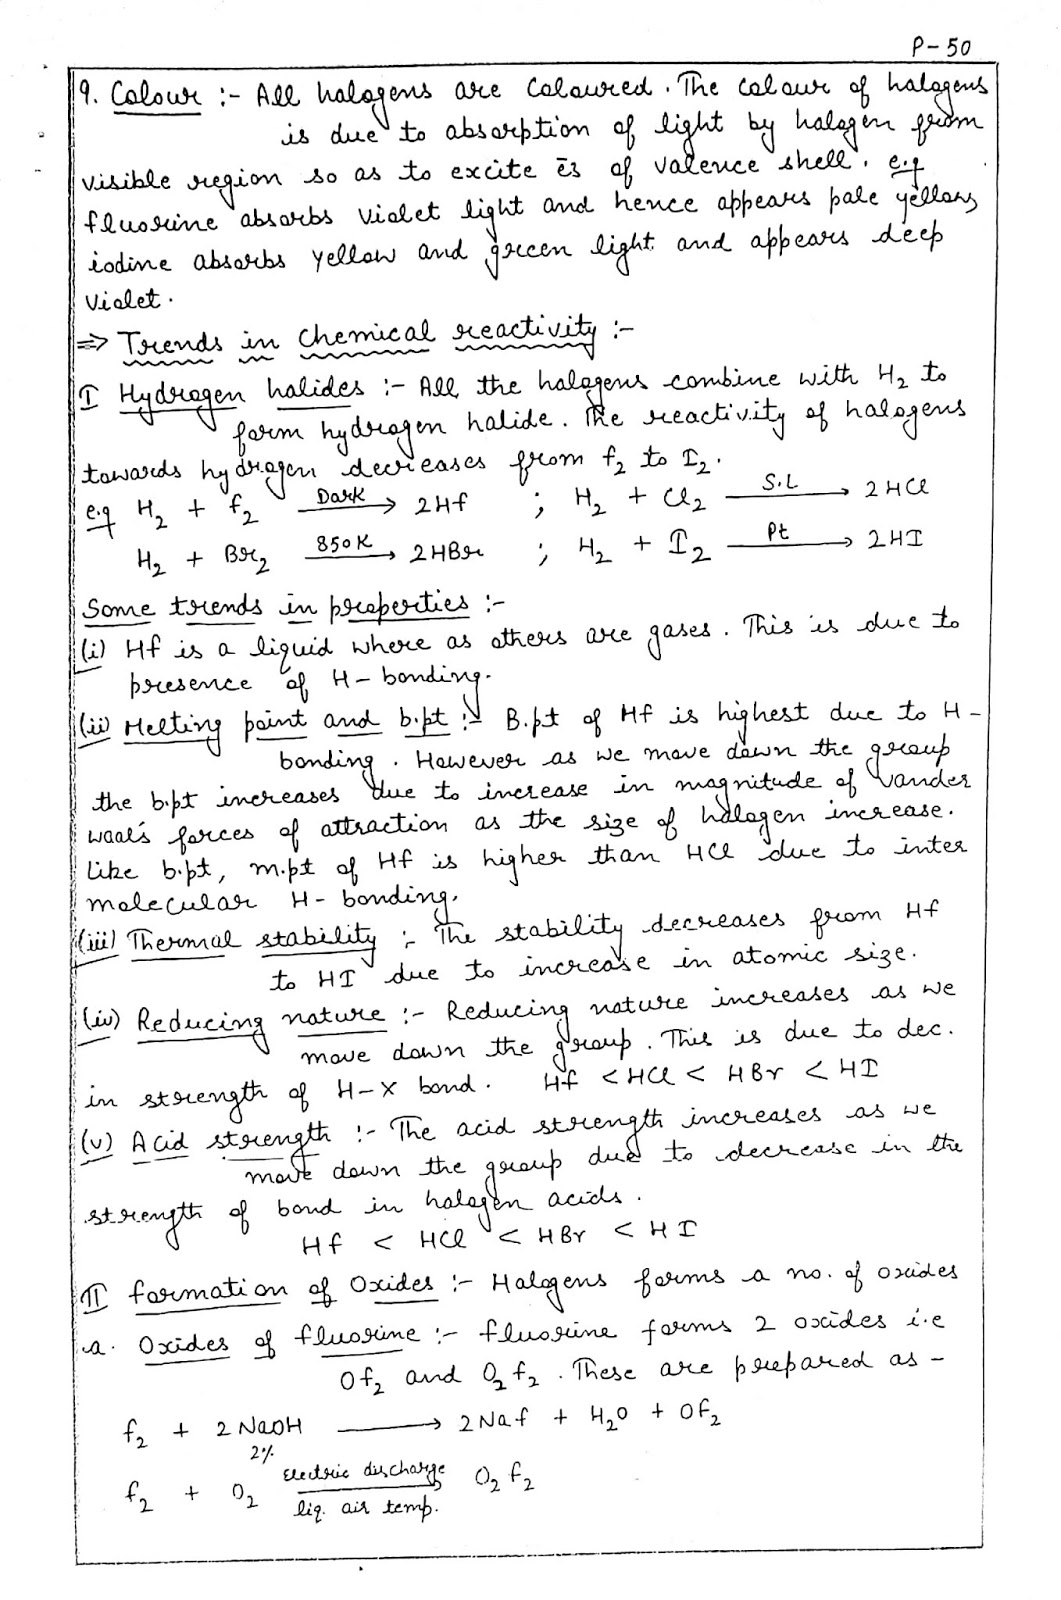 P-50
9. Colour :- All halogens are coloured. The colour of halogens
is due to absorption of light by halogen from
visible region so as to excite ēs of valence shell. e.g
fluorine absorbs violet light and hence appears pale yellow,
iodine absorbs yellow and green light and appears deep
violet.
⇒ Trends in chemical reactivity :-
I Hydrogen halides :- All the halogens combine with H₂ to
form hydrogen halide. The reactivity of halogens
towards hydrogen decreases from f₂ to I₂.
e.g H₂ + f₂ —Dark→ 2Hf ; H₂ + Cl₂ —S.L→ 2HCl
H₂ + Br₂ —850K→ 2HBr ; H₂ + I₂ —Pt→ 2HI
Some trends in properties :-
(i) Hf is a liquid where as others are gases. This is due to
presence of H-bonding.
(ii) Melting point and b.pt :- B.pt of Hf is highest due to H-
bonding. However as we move down the group
the b.pt increases due to increase in magnitude of vander
waal's forces of attraction as the size of halogen increase.
Like b.pt, m.pt of Hf is higher than HCl due to inter
molecular H-bonding.
(iii) Thermal stability :- The stability decreases from Hf
to HI due to increase in atomic size.
(iv) Reducing nature :- Reducing nature increases as we
move down the group. This is due to dec.
in strength of H-X bond. Hf < HCl < HBr < HI
(v) Acid strength :- The acid strength increases as we
move down the group due to decrease in the
strength of bond in halogen acids.
Hf < HCl < HBr < HI
II formation of Oxides :- Halogens forms a no. of oxides
a. Oxides of fluorine :- fluorine forms 2 oxides i.e
Of₂ and O₂f₂. These are prepared as -
f₂ + 2NaOH ⟶ 2Naf + H₂O + Of₂
2%
f₂ + O₂ —Electric discharge→ O₂f₂
liq. air temp.